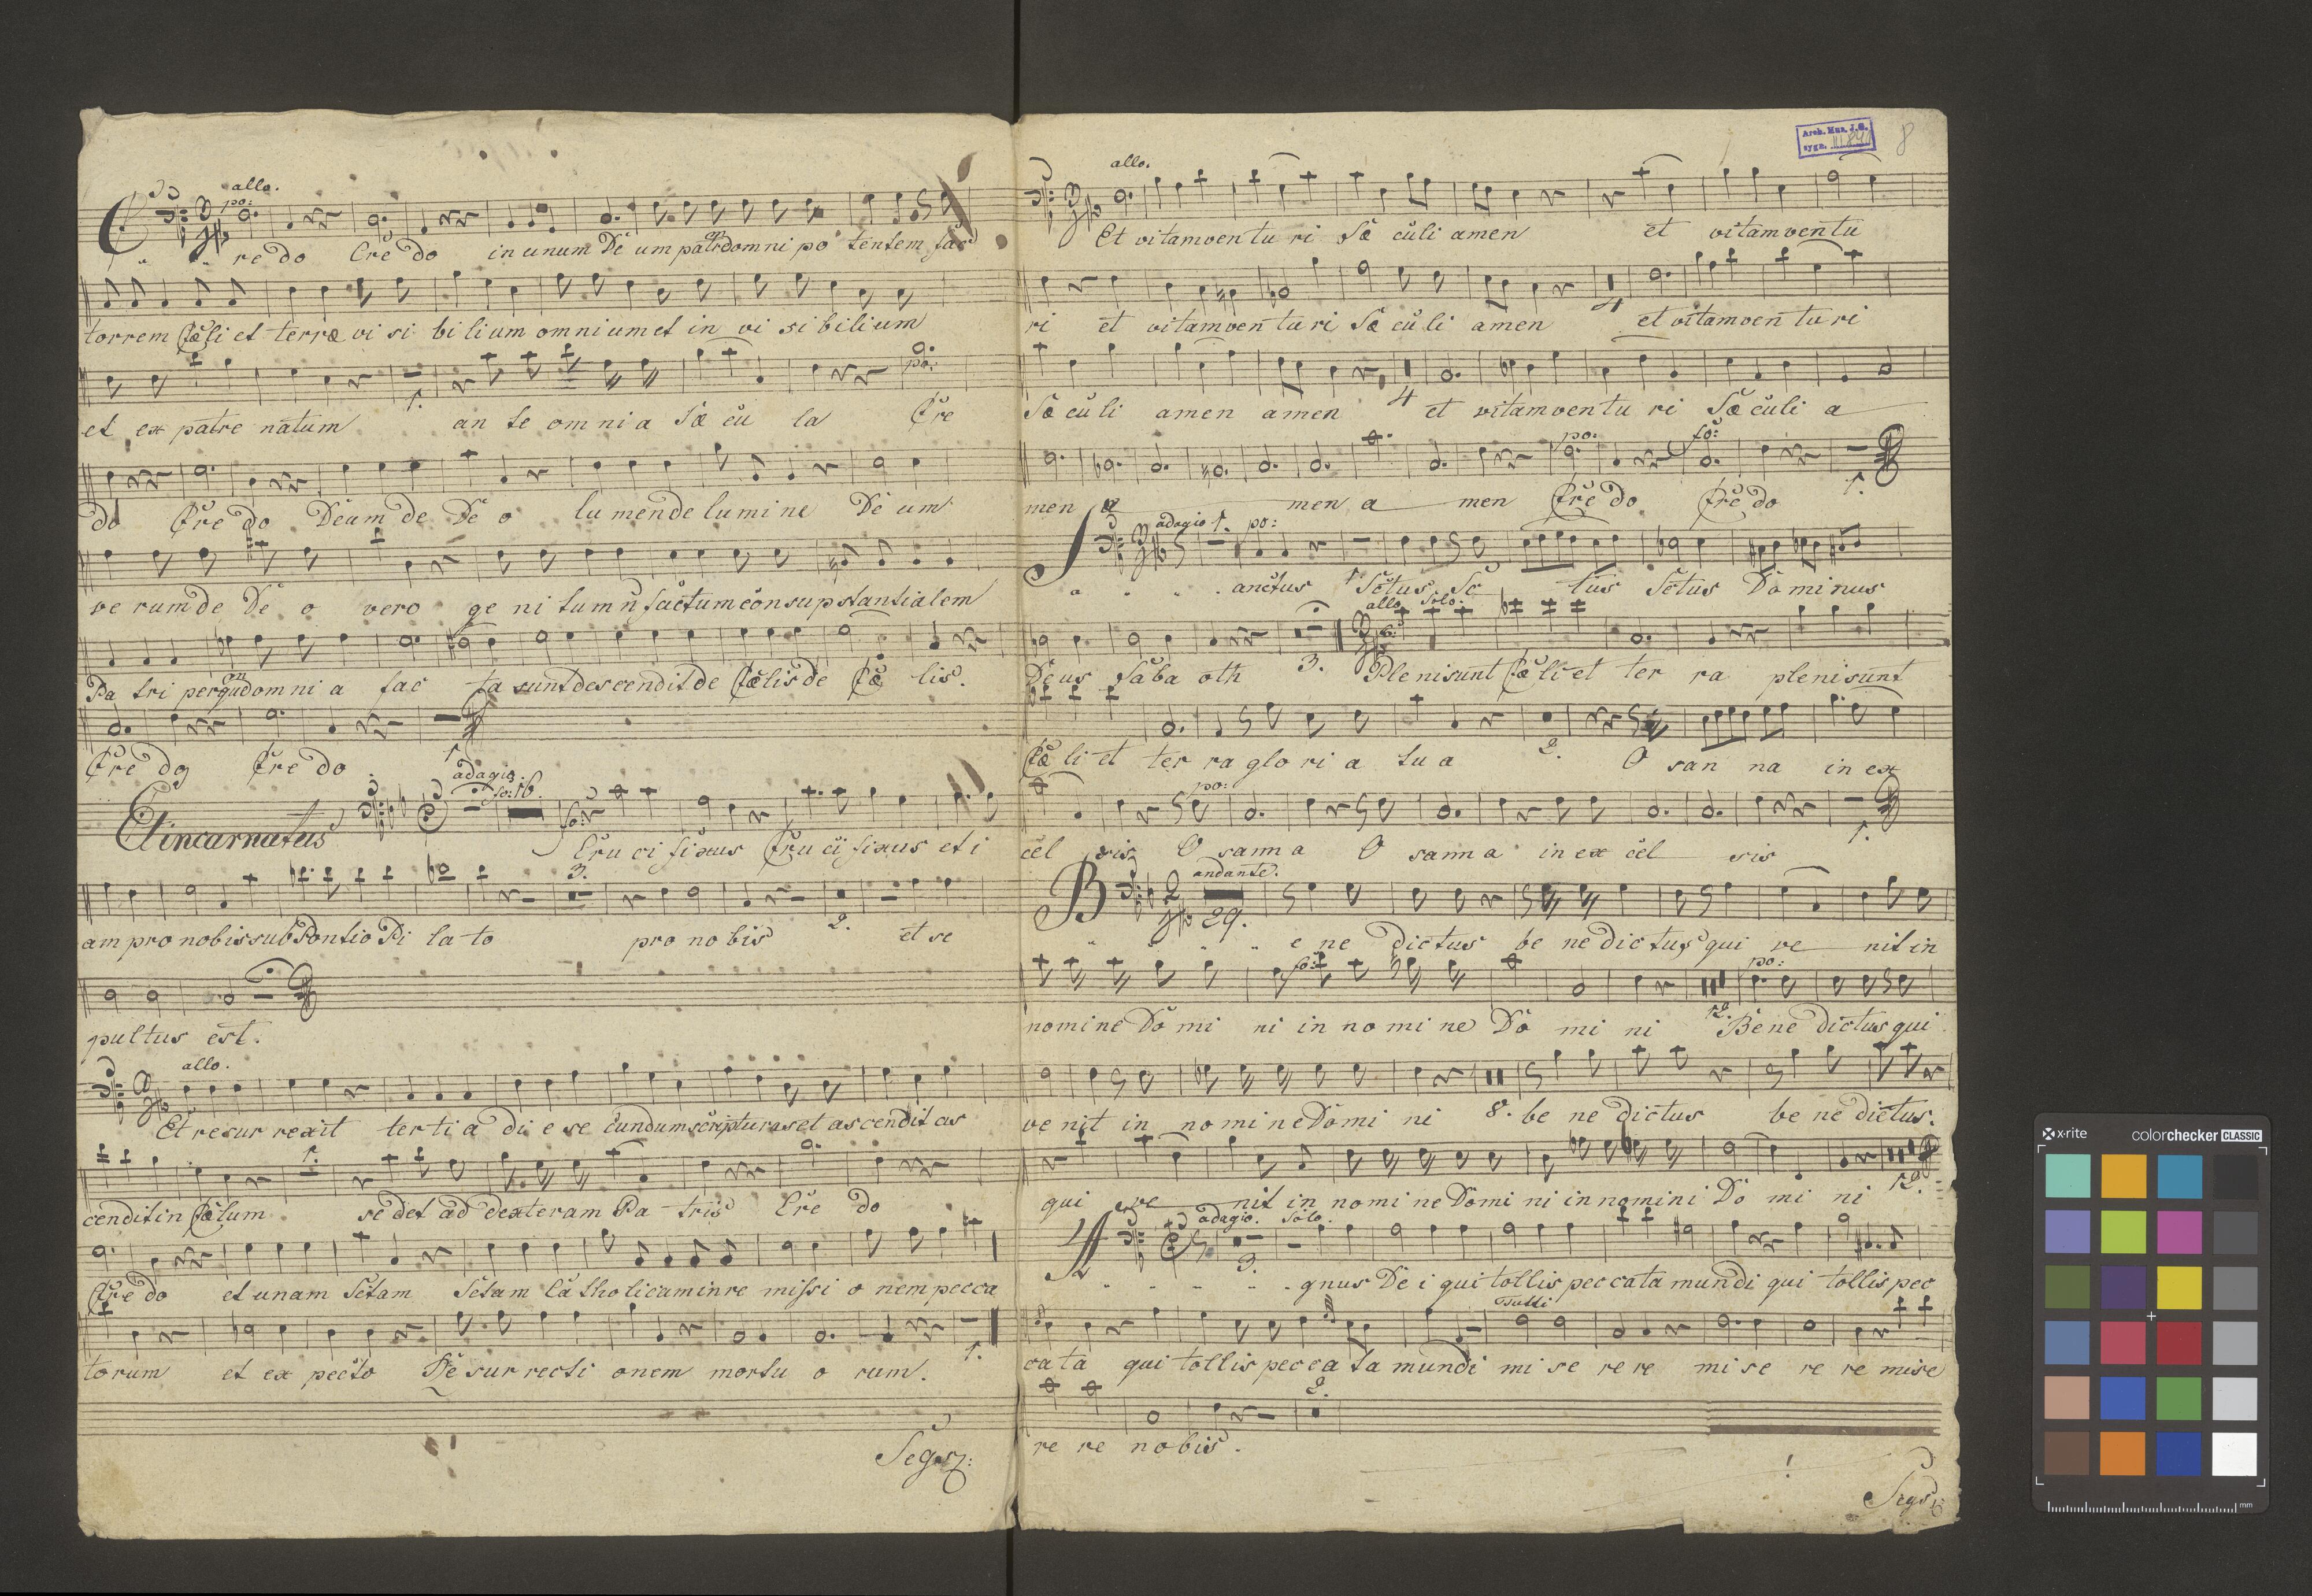 allo.
po:
Credo Cre do in unum De um patrem omni po tentem fac
torrem Cæli et terræ vi si bi lium omnium et in vi si bilium
1.
po:
et ex patre natum an te om ni a Sæ cu la Cre
do Cre do Deum de De o lu men de lu mi ne De um
ve rum de De o vero ge ni tum ñ factum consupstantialem
Pa tri per qud omni a fac ta sunt descendit de Cælis de Cæ lis.
Cre do Cre do
1.
adagio.
so: 16.
Et incarnatus Cru ci fixus Cru ci fixus et i
3.
am pro nobis sub Pontio Pi la to pro no bis 2. et se
pultus est.
allo.
Et resur rexit ter ti a di e se cundum scripturas et ascendit as
1.
cendit in Cælum se det ad dexteram Pa tris Cre do
Cre do et unam Sctam Sctam Catholicam in re missi o nem pecca
1.
torum et ex pecto Re sur recti onem mortu o rum.
Segsq:
Arch. Muz. J.G.
sygn.
8
allo.
Et vitam ven tu ri Sæ culi amen et vitam ven tu
4
ri et vitam ven tu ri Sæ cu li amen et vitam ven tu ri
4
Sæ cu li amen amen et vitam ven tu ri Sæ culi a
po: fo:
men a men a men Cre do Cre do
1.
adagio 1. po:
Sanctus 1. Sctus Sc tus Sctus Do minus
allo. Solo.
De us Saba oth 3. Pleni sunt Cæ li et ter ra pleni sunt
Cæ li et ter ra glo ri a tu a 2. O san na in ex
po:
cel sis O sanna O sanna in ex cel sis
1.
andante.
29.
Be ne dictus be ne dictus qui ve nit in
fo: po:
nomine Do mi ni in no mi ne Do mi ni 12. Bene dictus qui
ve nit in no mi ne Domi ni 8. be ne dictus be ne dictus.
qui ve nit in nomi ne Domi ni in nomini Do mi ni 12.
adagio. Solo.
3.
Agnus De i qui tollis peccata mundi qui tollis pec
Tutti
cata qui tollis pecca ta mundi mi se re re mi se re re mise
2.
re re nobis.
Segsq:
x-rite
colorchecker CLASSIC
mm